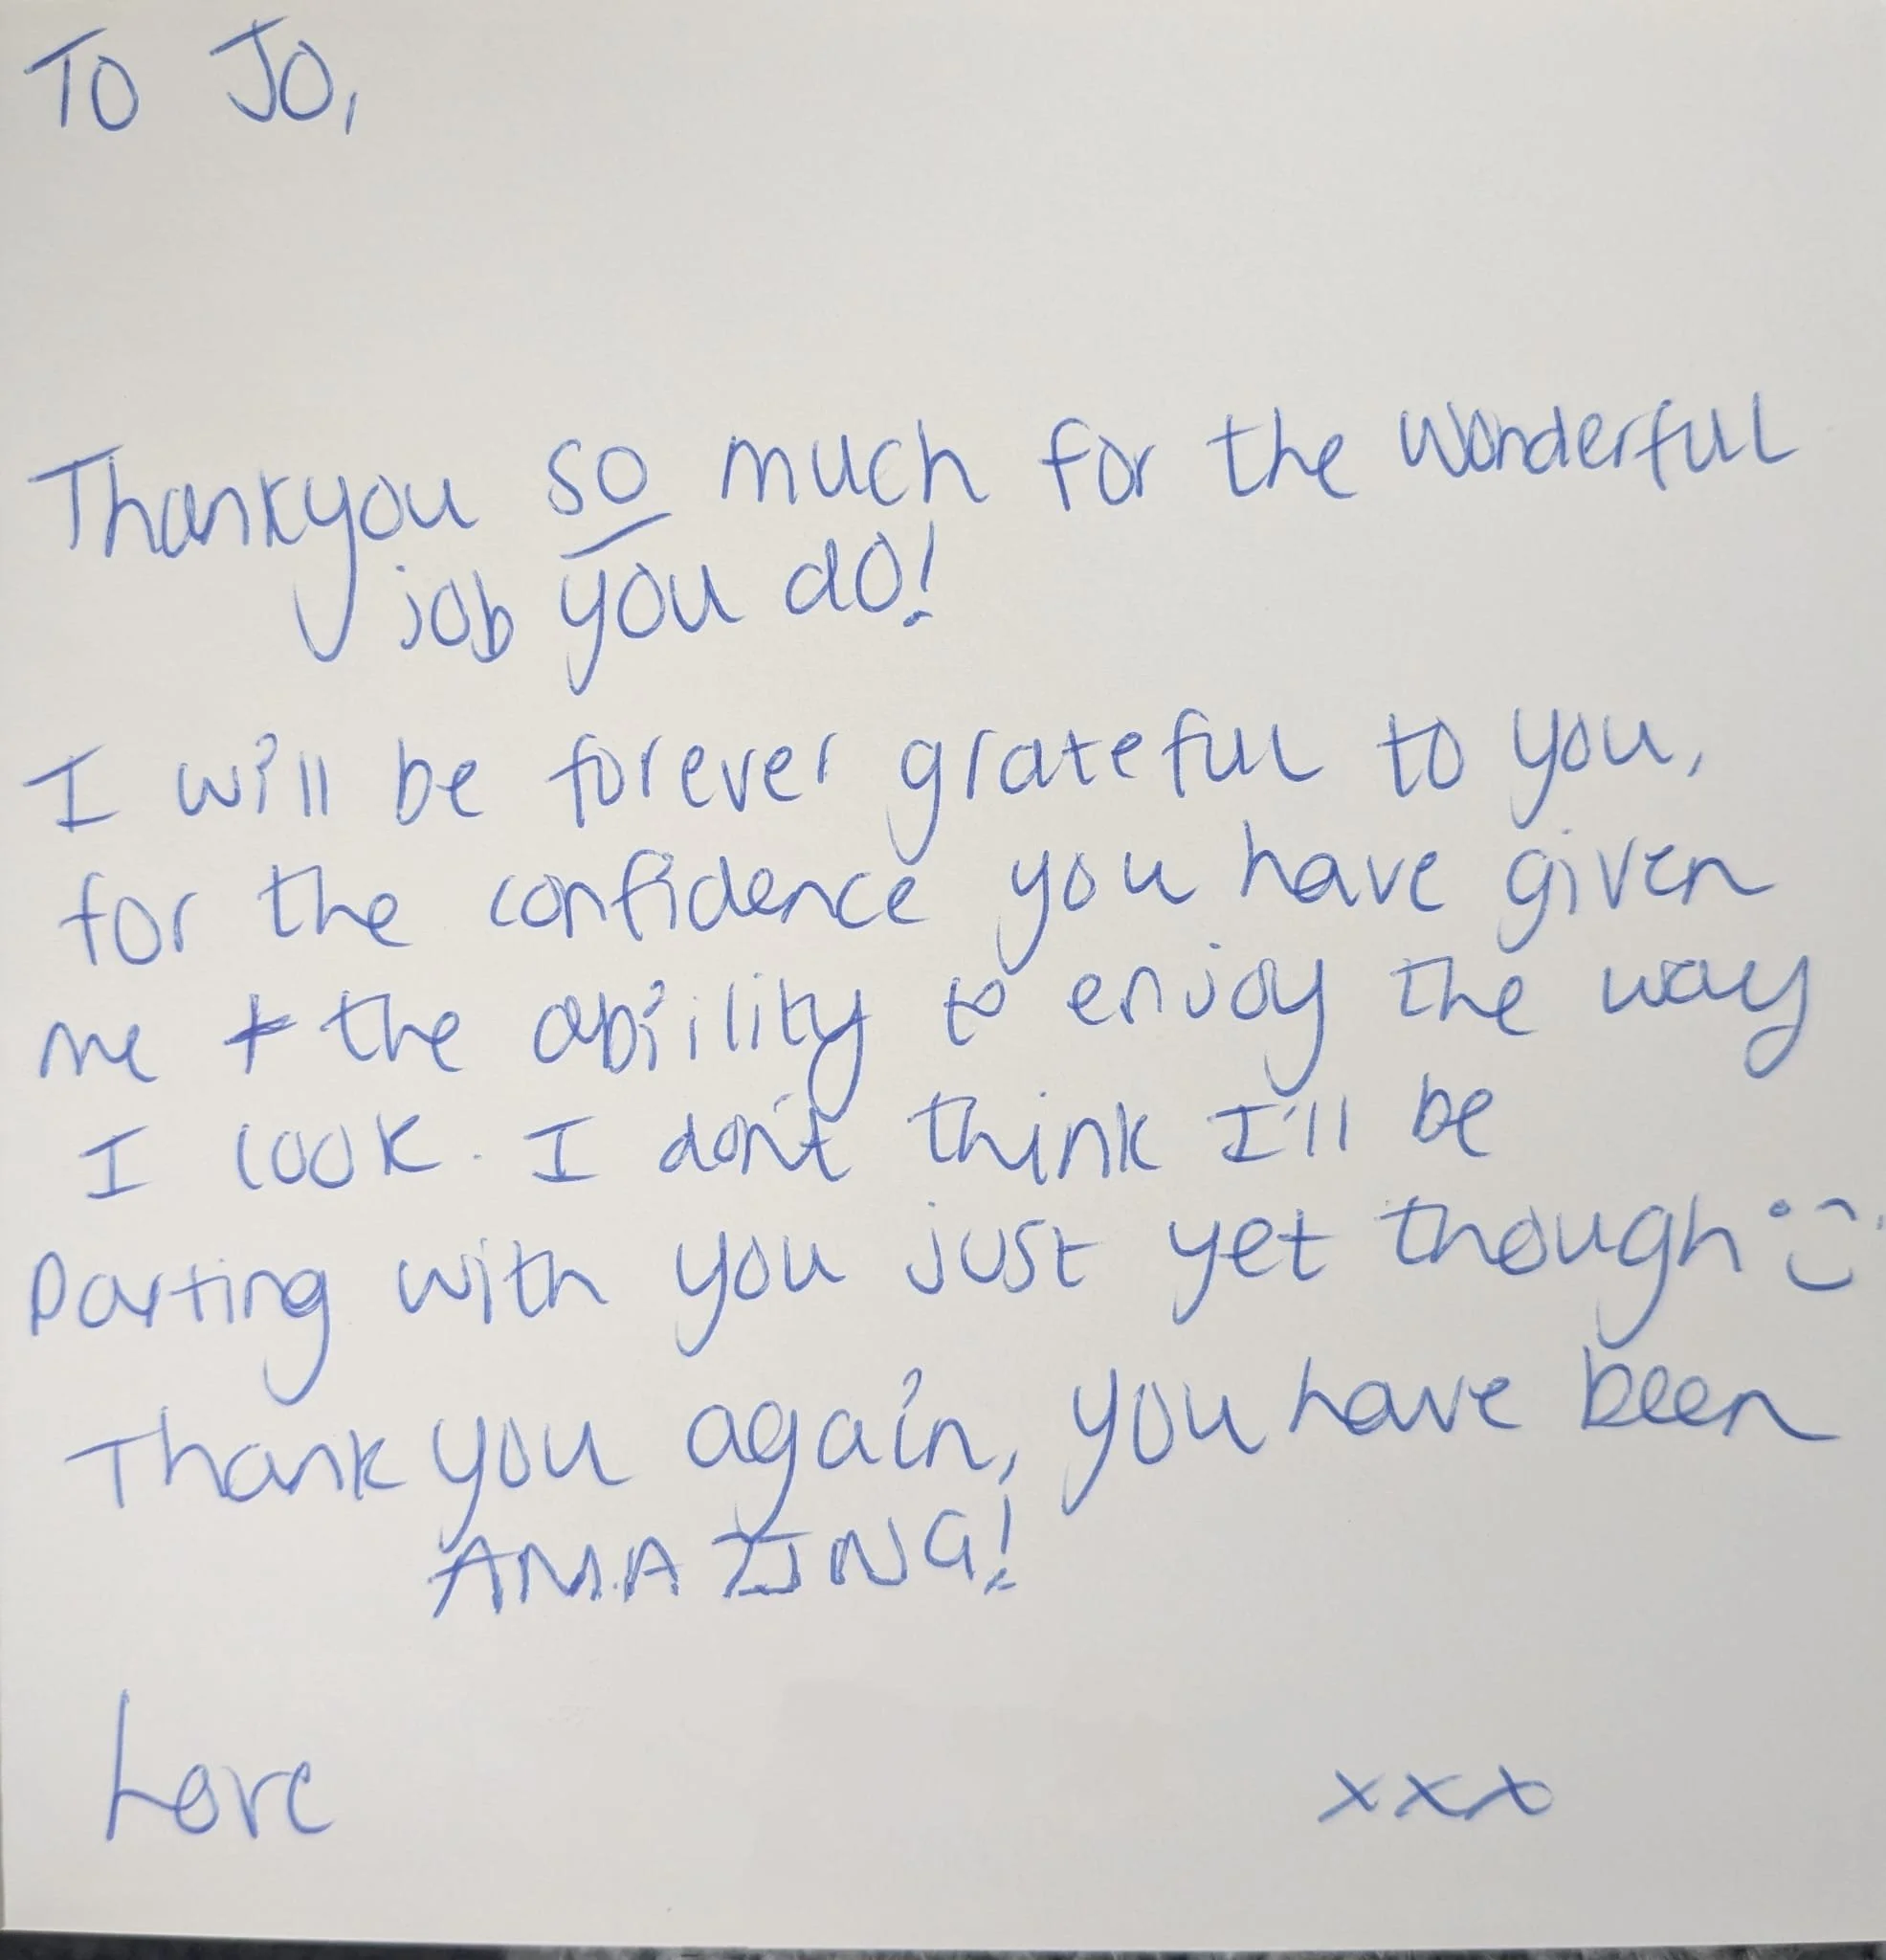 To Jo,
Thankyou so much for the wonderful
job you do!
I will be forever grateful to you,
for the confidence you have given
me + the abiility to enjoy the way
I look. I don't think I'll be
Parting with you just yet though :)
Thank you again, you have been
AMAZING!
Love xxx